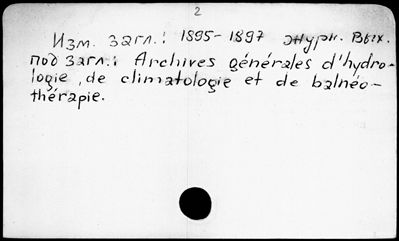 2
Изм. загл.: 1895-1897 журн. Вых.
под загл.: Archives générales d'hydro-
logie, de climatologie et de balnéo-
thérapie.